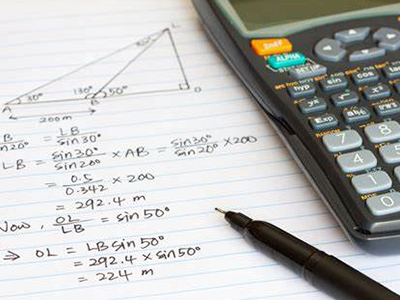 L
30° 130° 50°
A B O
200m
B/sin20° = LB/sin30°
LB = sin30°/sin20° × AB = sin30°/sin20° × 200
= 0.5/0.342 × 200
= 292.4 m
Now, OL/LB = sin50°
⇒ OL = LB sin 50°
= 292.4 × sin50°
= 224 m
SHIFT
ALPHA
hyp sin cos
Exp Ans
7 8
4 5
1 2
0